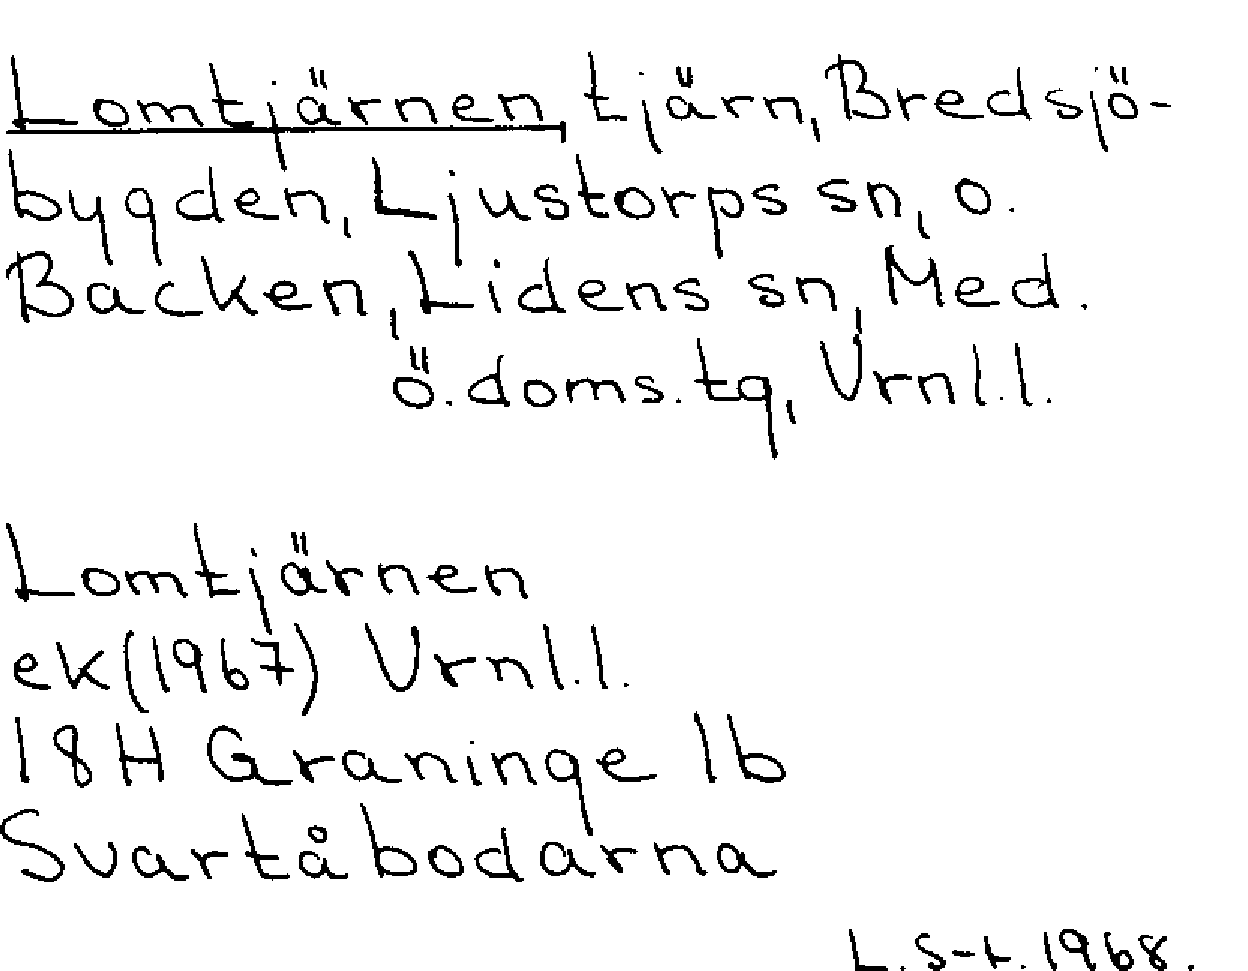 Lomtjärnen, tjärn, Bredsjö-
bygden, Ljustorps sn, o.
Backen, Lidens sn, Med.
ö.doms.tg, Vrnl.l.
Lomtjärnen
ek(1967) Vrnl.l.
18H Graninge 1b
Svartåbodarna
L.S-t.1968.